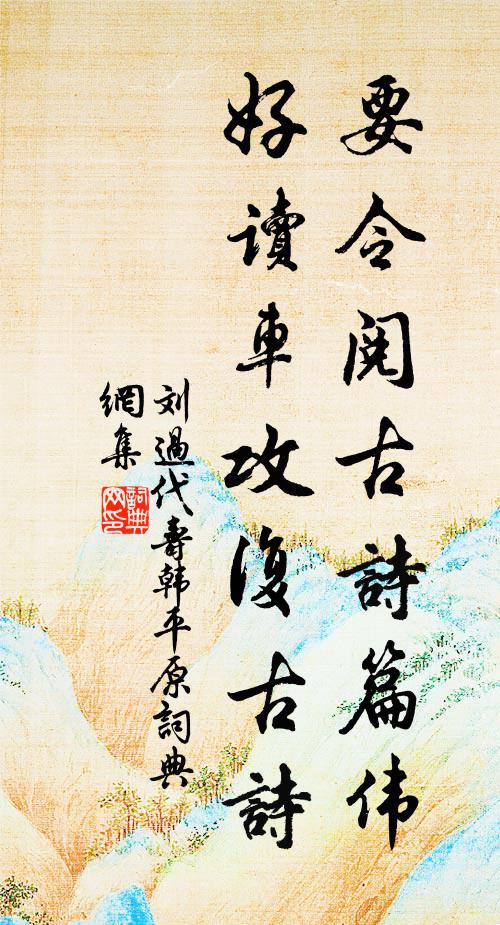 要令阅古詩篇伟
好讀車攻復古詩
刘過代壽韩平原詞典
網集
詞典
网印